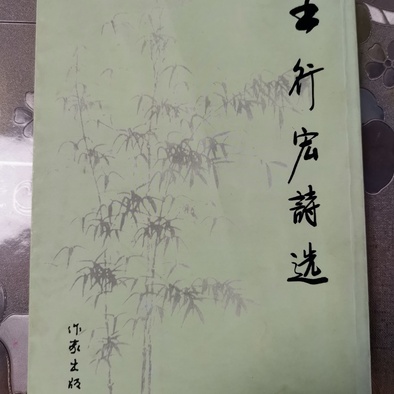 王行宏詩选
作家出版